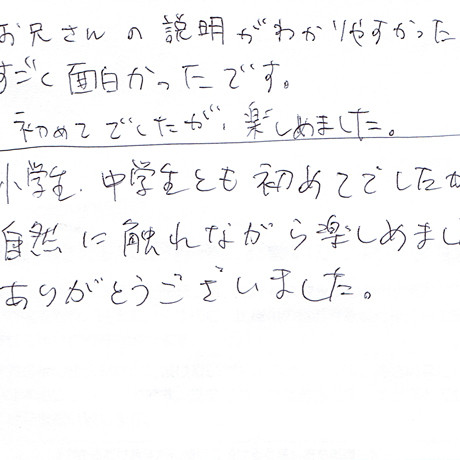 お兄さんの説明がわかりやすかった
すごく面白かったです。
初めてでしたが、楽しめました。
小学生、中学生とも初めてでしたが
自然に触れながら楽しめまし
ありがとうございました。